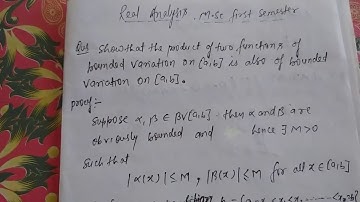 Real Analysis, M.Sc first semester
Qus show that the product of two functions of
bounded variation on [a,b] is also of bounded
variation on [a,b].
proof:-
Suppose α, β ∈ BV[a,b] then α and β are
obviously bounded and hence ∃ M>0
Such that
|α(x)| ≤ M, |β(x)| ≤ M for all x ∈ [a,b]